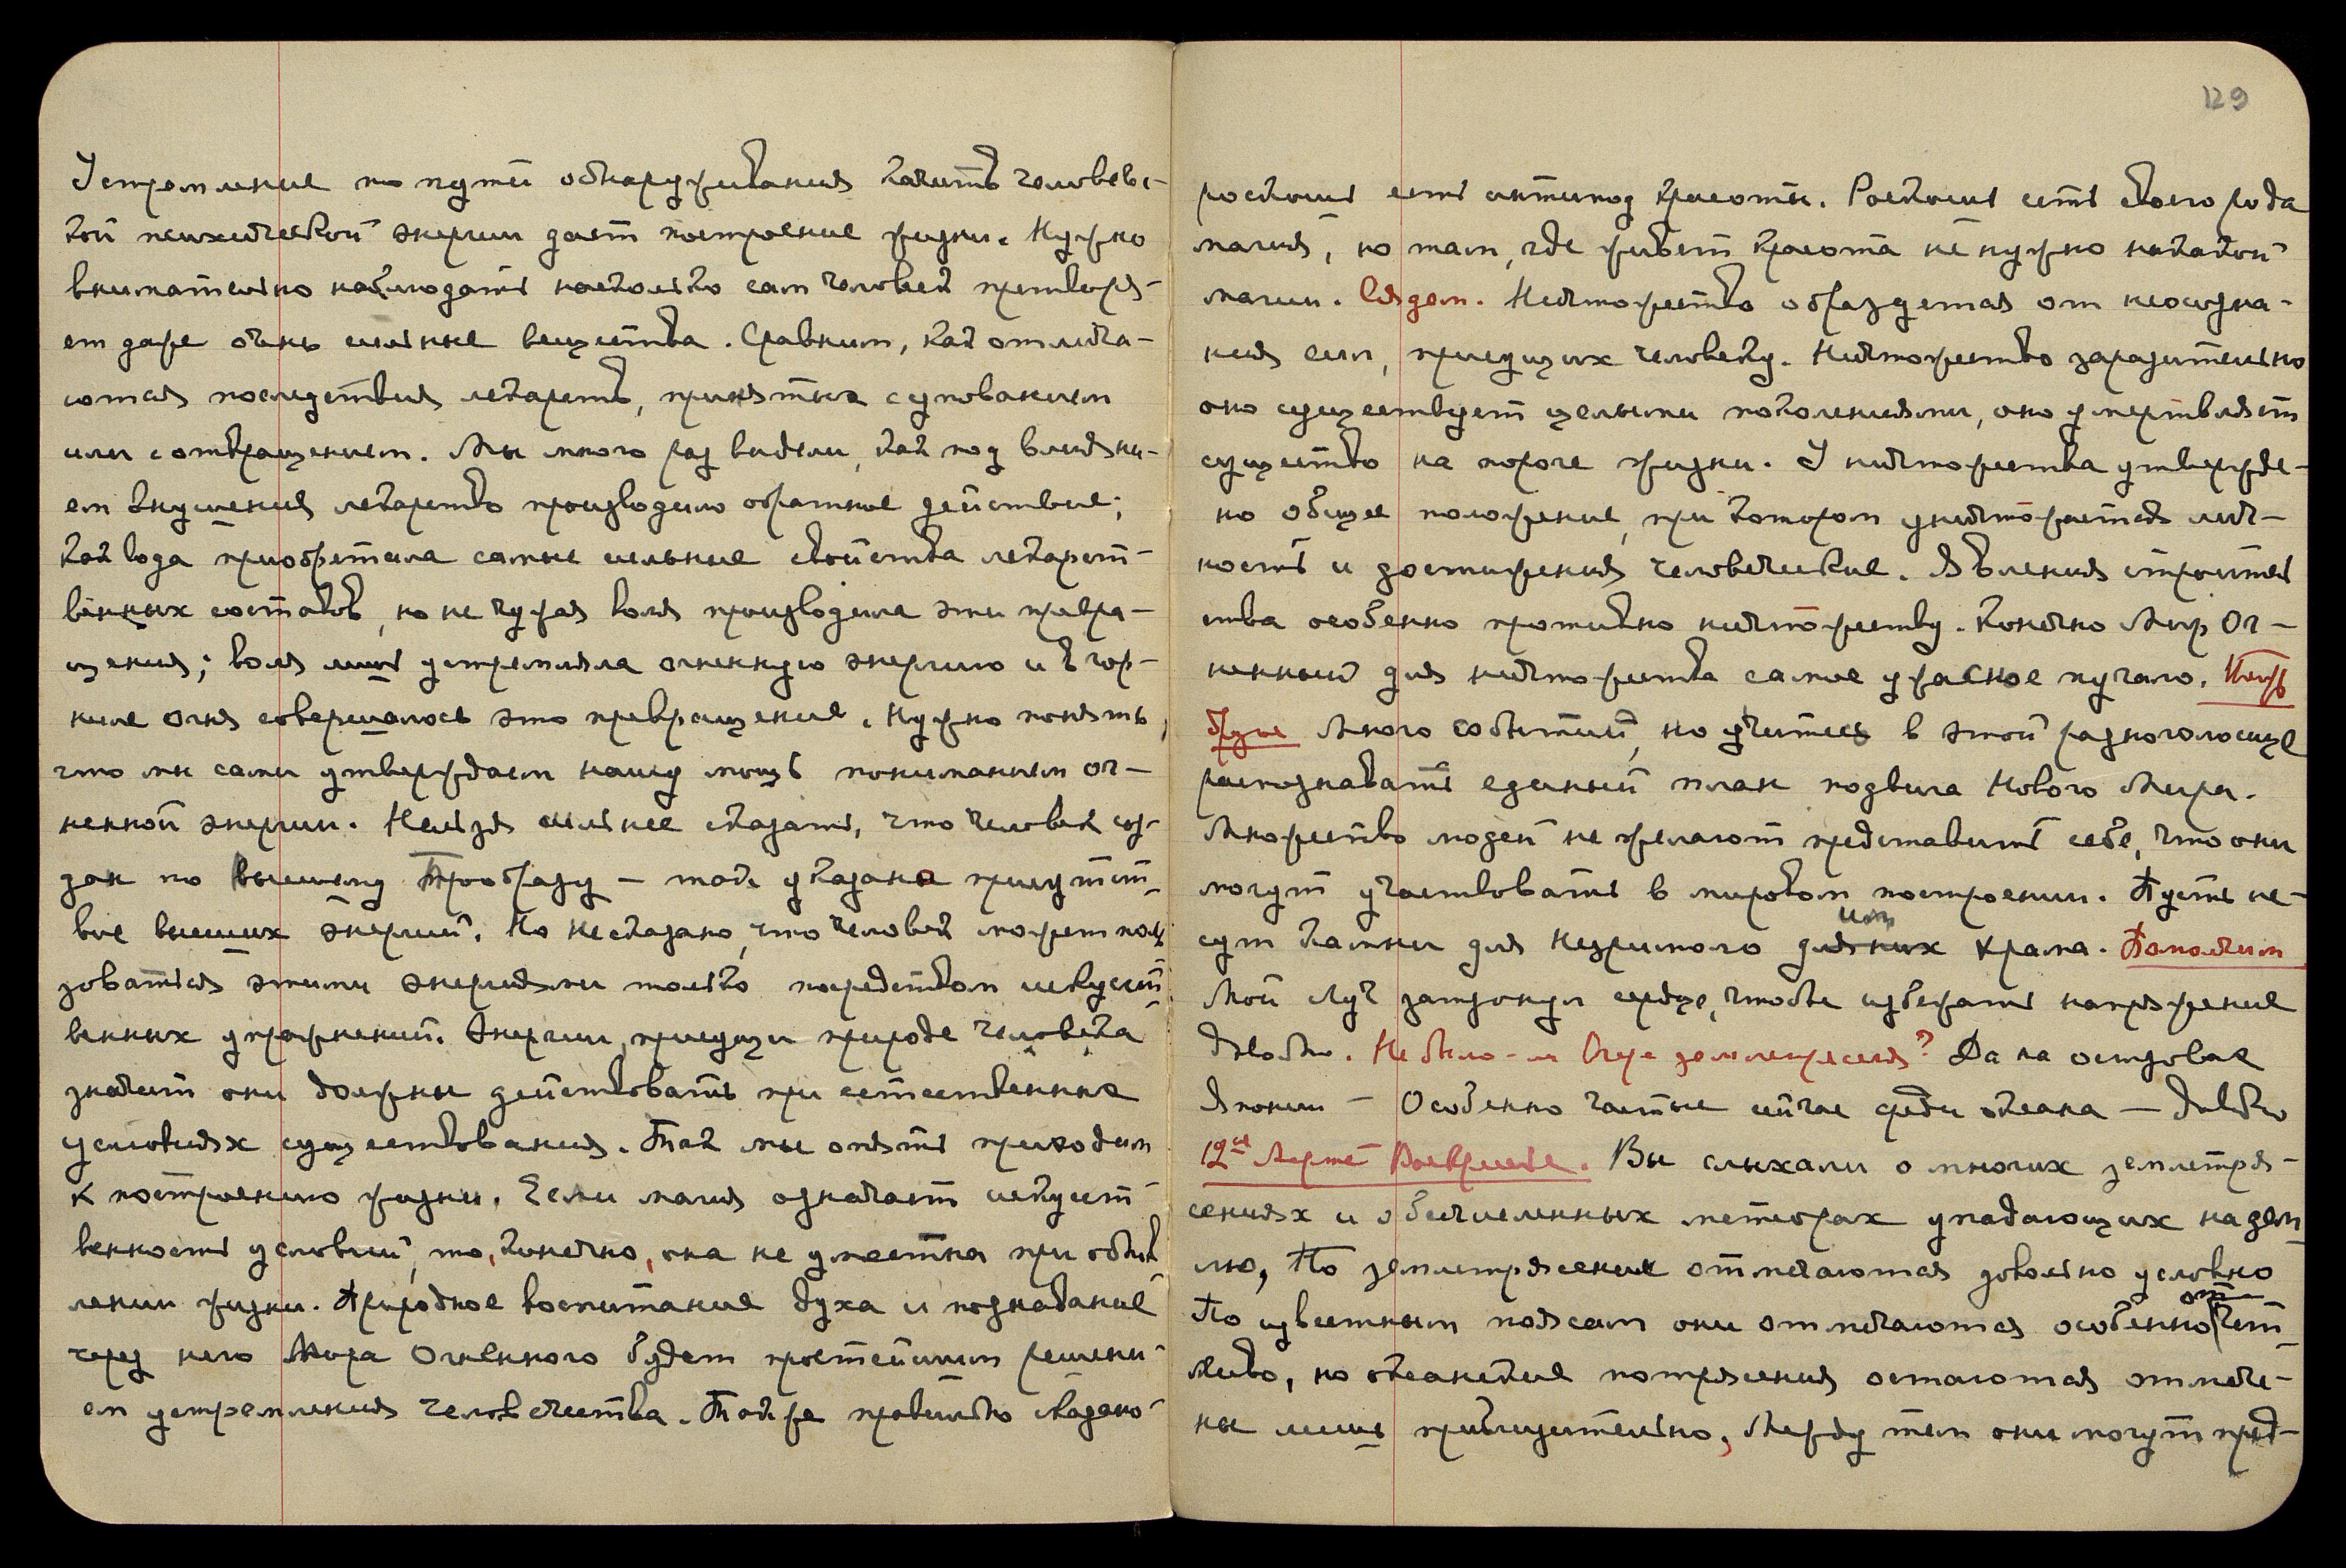 Устремление по пути обнаруживания качеств человечес-
кой психической энергии дает построение жизни. Нужно
внимательно наблюдать насколько сам человек претворя-
ет даже очень сильные вещества. Сравним, как отлича-
ются последствия лекарств, принятых с упованием
или с отвращением. Мы много раз видели, как под влияни-
ем внушения лекарство производило обратное действие;
как вода приобретала самые сильные свойства лекарст-
венных составов, но не чужая воля производила эти превра-
щения; воля лишь устремляла огненную энергию и в гор-
ниле огня совершалось это превращение. Нужно понять,
что мы сами утверждаем нашу мощь пониманием ог-
ненной энергии. Нельзя сильнее сказать, что человек соз-
дан по высшему Прообразу — так указано присутст-
вие высших энергий. Но не сказано, что человек может поль-
зоваться этими энергиями только посредством искусст-
венных упражнений. Энергии, присущи природе человека
значит они должны действовать при естественных
условиях существования. Так мы опять приходим
к построению жизни. Если магия означает искусст-
венность условий, то, конечно, она не уместна при обнов-
лении жизни. Природное воспитание духа и познавание
через него Мира Огненного будет простейшим решени-
ем устремления человечества. Также правильно сказано
129
роскошь есть антипод красоты. Роскошь есть своего рода
магия, но там, где живет красота не нужно никакой
магии. Сядем. Ничтожество образуется от неосозна-
ния сил, присущих человеку. Ничтожество заразительно
оно существует целыми поколениями, оно умертвляет
существо на пороге жизни. У ничтожества утвержде-
но общее положение, при котором уничтожается лич-
ность и достижения человеческие. Явления строитель
ства особенно противно ничтожеству. Конечно Мир Ог-
ненный для ничтожества самое ужасное пугало.
Много событий, но учитесь в этой разноголосице
распознавать единый план подвига Нового Мира.
Множество людей не желают представить себе, что они
могут участвовать в мировом построении. Пусть не-
сут камни для Незримого для них
им
Храма. Помолчим
Мой Луч затронул сердце, чтобы избежать напряжение
довольно. Не было-ли Вчера землетрясения? Да на островах
Японии — Особенно частые сейчас среди океана — довольно
12ое Марта Воскресенье. Вы слыхали о многих землетря-
сениях и о бесчисленных метеорах упадающих на зем
лю, Но землетрясения отмечаются довольно условно
По известным поясам они отмечаются особенно отчет-
ливо, но океанские потрясения остаются отмече-
ны лишь приблизительно, Между тем они могут пред-